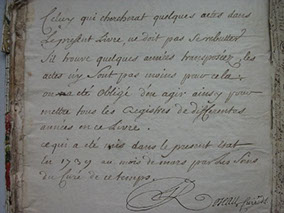 Celuy qui chercherat quelques actes dans
le present Livre, ne doit pas se rebutter
s'il trouve quelques années transposéez les
actes ny sont pas moins pour cela,
on a eté obligé d'en agir ainsy pour
mettre tous les Registres de differentes
années en ce Livre.
ce qui a eté mis dans le present état
en 1739 au mois de par les soins
du Curé de ce temps.